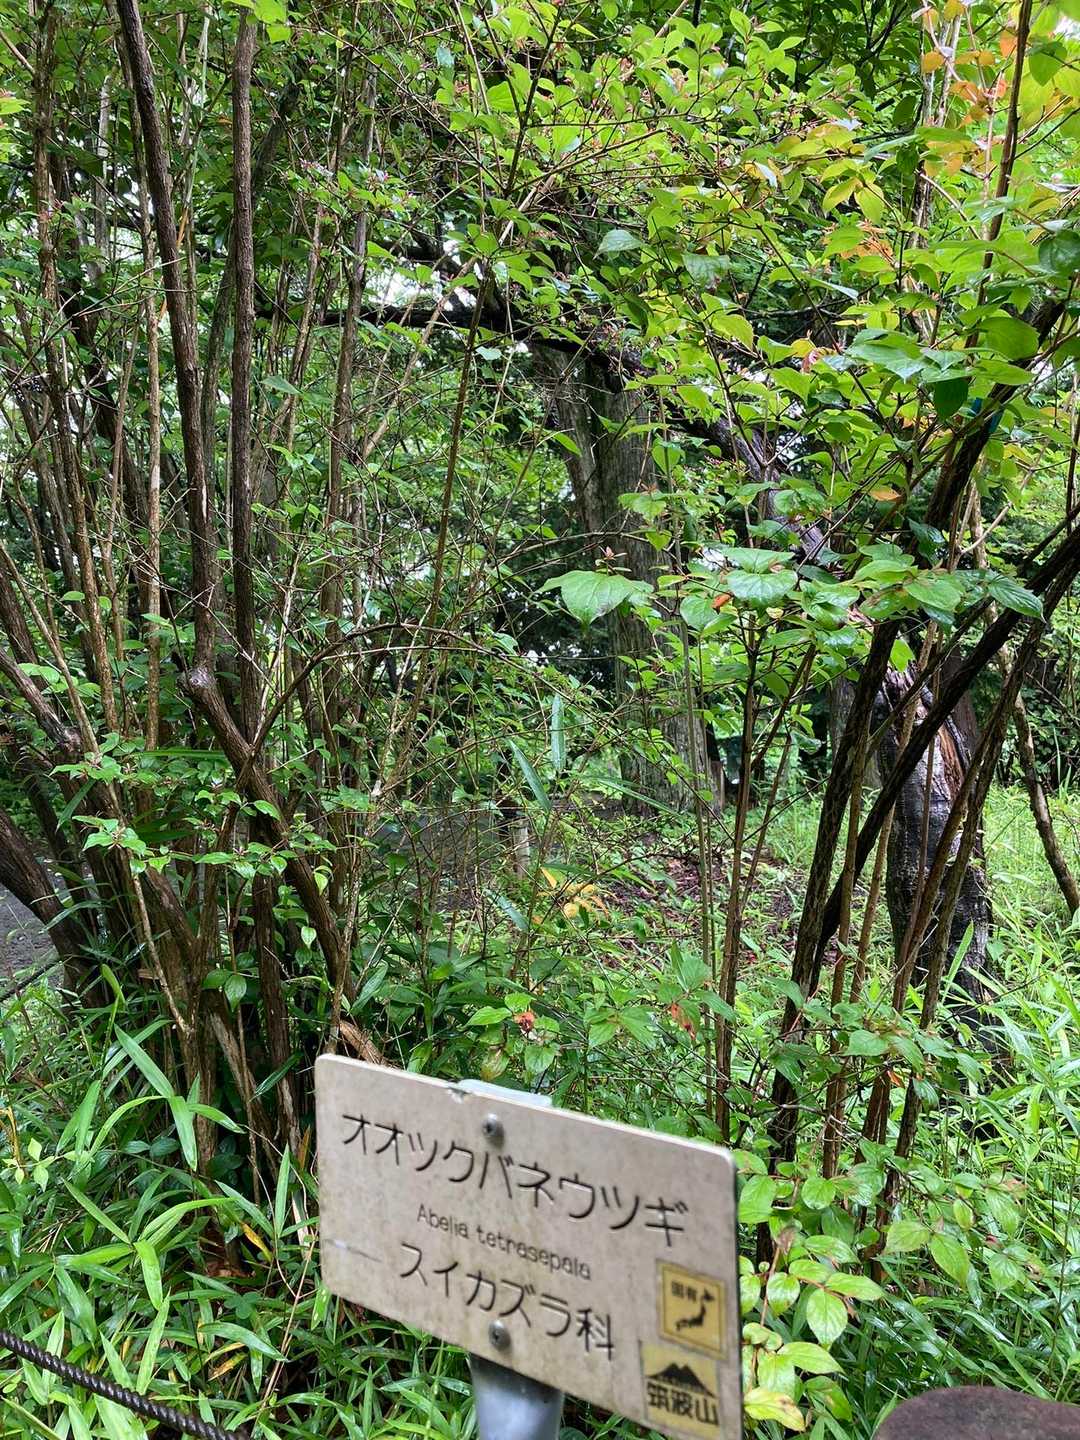 オオツクバネウツギ
Abelia tetrasepala
スイカズラ科
固有
筑波山